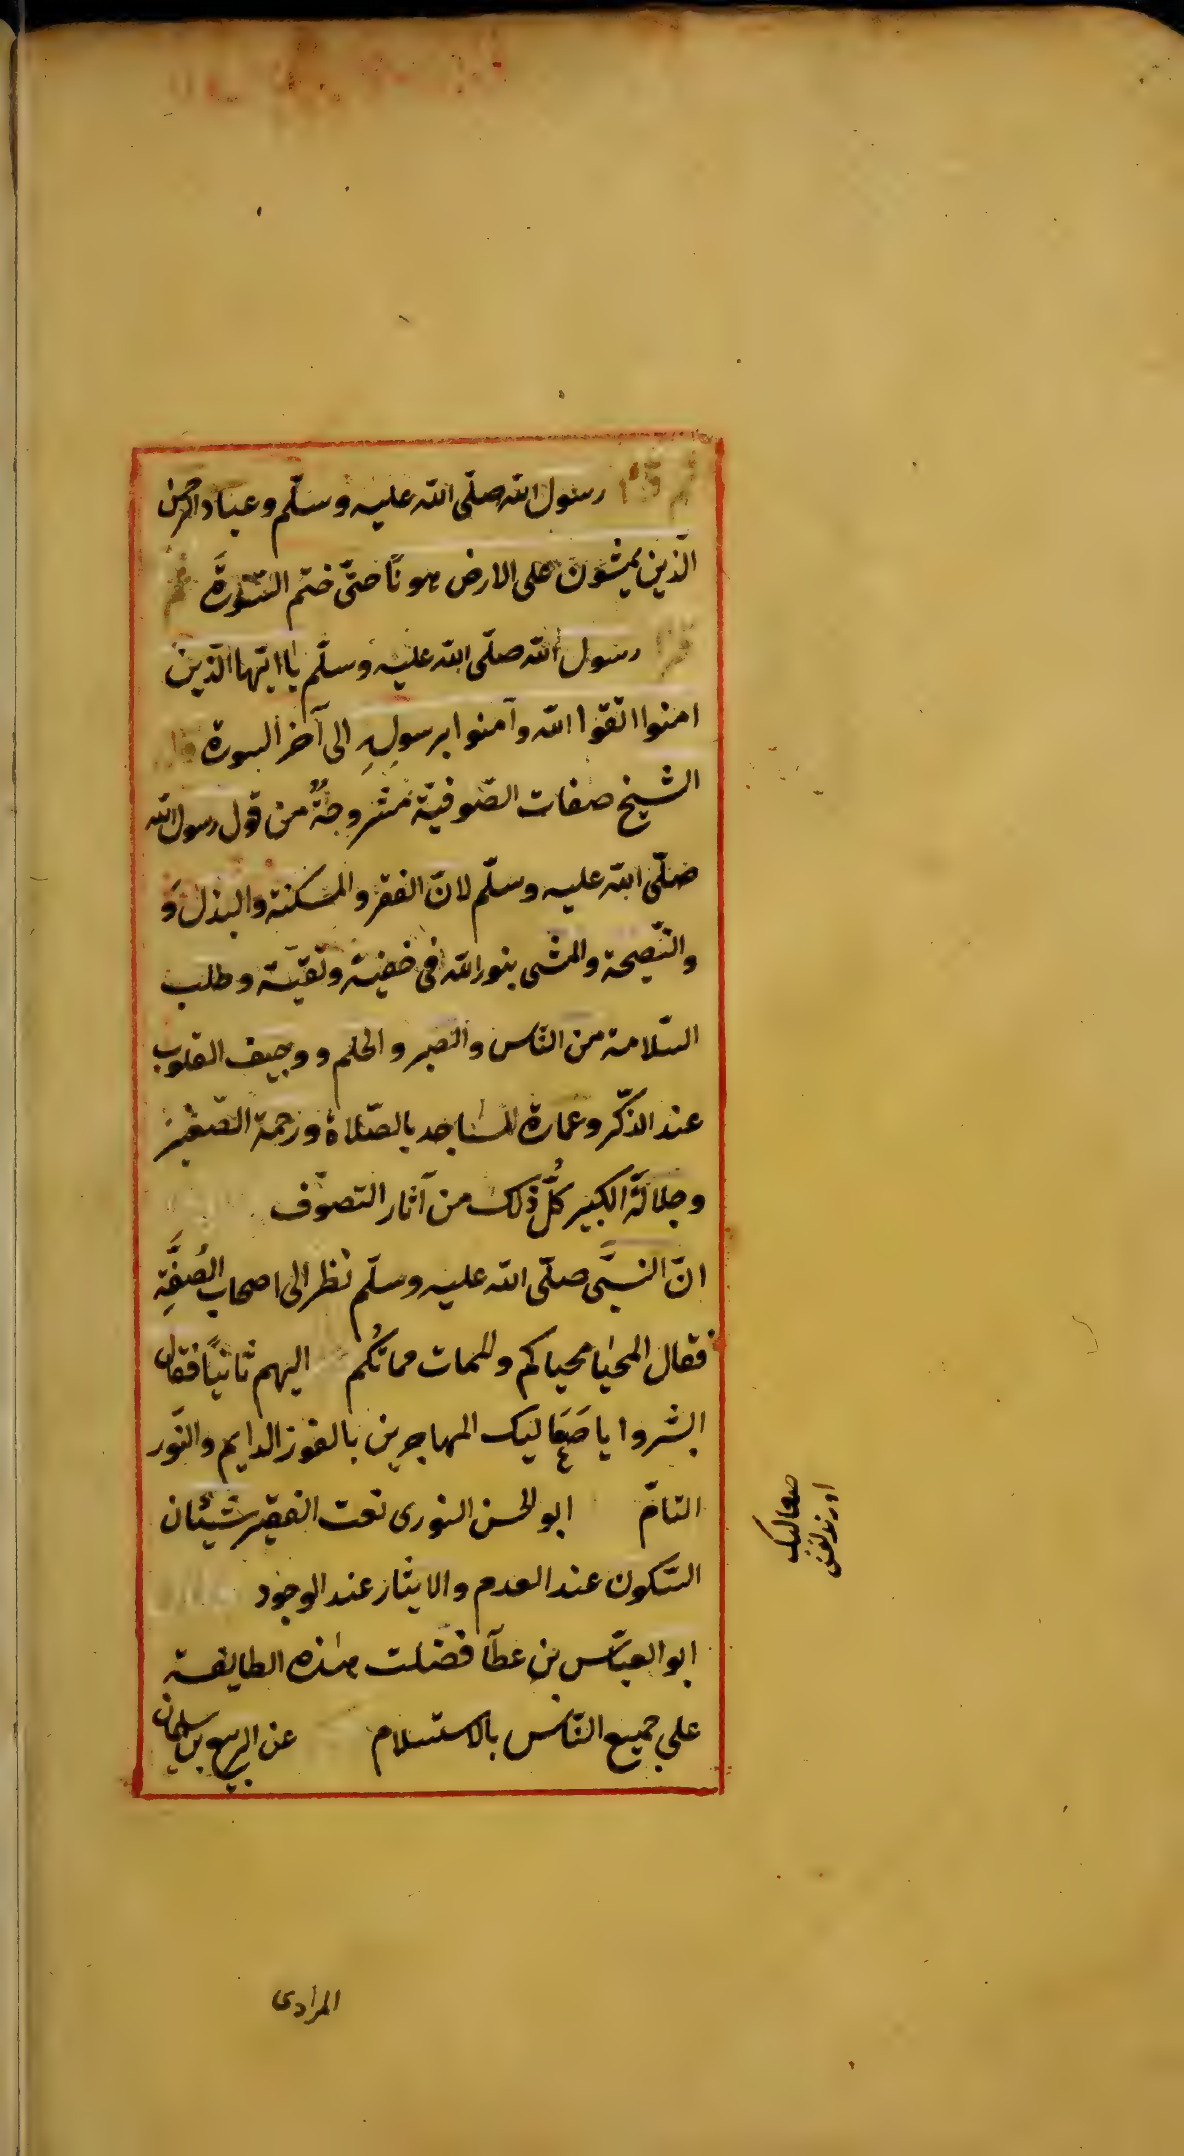 ثم قرأ رسول الله صلّى الله عليه وسلّم وعباد الرحمن
الّذين يمشون على الارض هونًا حتّى ختم السّورةَ ثم
قرا رسول الله صلّى الله عليه وسلّم يا ايّها الّذين
امنوا اتقوا الله وآمنوا برسولِهِ الى آخر السورة قال
الشيخ صفات الصّوفيّة مشروحةٌ من قول رسول الله
صلّى الله عليه وسلّم لانّ الفقر والمسكنة والبذل وَ
والنّصيحة والمشى بنور الله فى خفية وتقيّة وطلب
السّلامة من النّاس والصبر والحلم ووجيف القلوب
عند الذّكر وعمارة المساجد بالصّلاة ورحمة الصّغير
وجلالة الكبير كلُّ ذلك من آثار التصوّف
انّ النبىَّ صلّى الله عليه وسلّم نظر الى اصحاب الصُفَّةِ
فقال المحيا محياكم والممات مماتُكم اليهم ثانيًا فقال
ابشروا يا صَعَاليك المهاجرين بالفوز الدايم والنّور
التامّ ابو الحسن النورى نعت الفقير شيئان
السّكون عند العدم والايثار عند الوجود
ابو العبّاس بن عطآ فضلت هذه الطايفة
على جميع النّاس بالاستسلام عن الربيع بن سليمان
صعاليك
المرادى